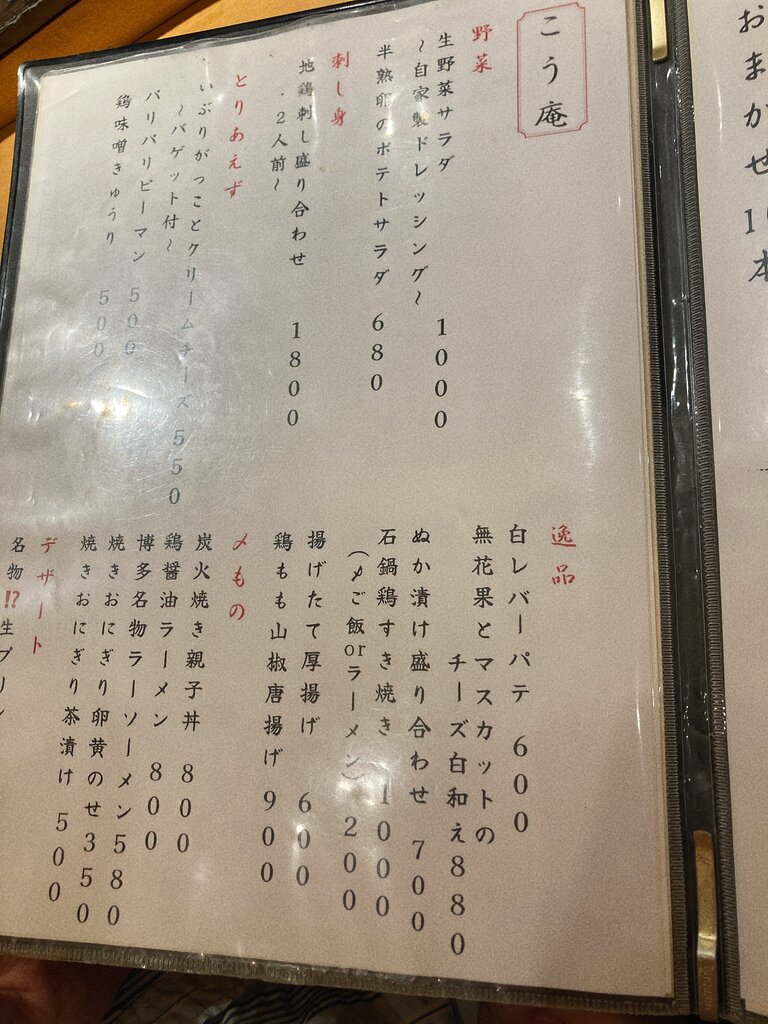 おまかせ10本
こう庵
野菜
生野菜サラダ
~自家製ドレッシング~ 1000
半熟卵のポテトサラダ 680
刺し身
地鶏刺し盛り合わせ 1800
・2人前~
とりあえず
いぶりがっことクリームチーズ 550
~バゲット付~
パリパリピーマン 500
鶏味噌きゅうり 500
逸品
白レバーパテ 600
無花果とマスカットの
チーズ白和え 880
ぬか漬け盛り合わせ 700
石鍋鶏すき焼き 1000
(〆ご飯orラーメン) 200
揚げたて厚揚げ 600
鶏もも山椒唐揚げ 900
〆もの
炭火焼き親子丼 800
鶏醤油ラーメン 800
博多名物ラーソーメン 580
焼きおにぎり卵黄のせ 350
焼きおにぎり茶漬け 500
デザート
名物⁉生プリン